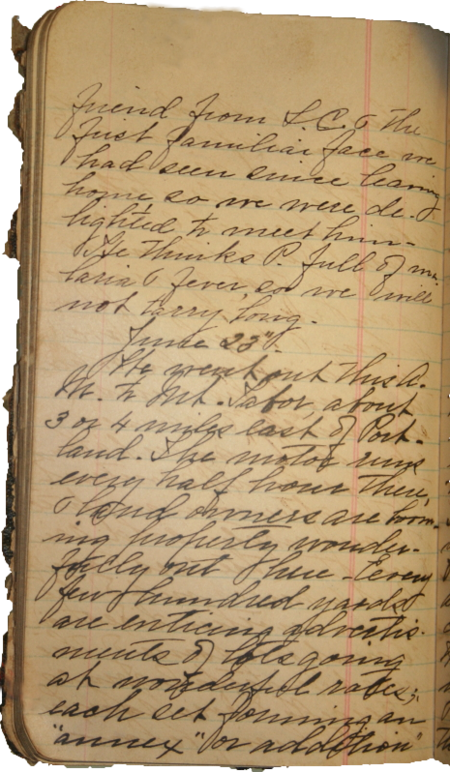 friend from S.C. & the
first familiar face we
had seen since leaving
home, so we were de-
lighted to meet him-
He thinks P. full of ma-
laria & fever, so we will
not tarry long.
June 23rd.
We went out this A.
M. to Mt. Tabor, about
3 or 4 miles east of Port-
land. The motor runs
every half hour there,
& land owners are boom-
ing property wonder-
fully out there - Every
few hundred yards
are enticing advertis-
ments of lots going
at wonderful rates;
each set forming an
"annex" or addition"